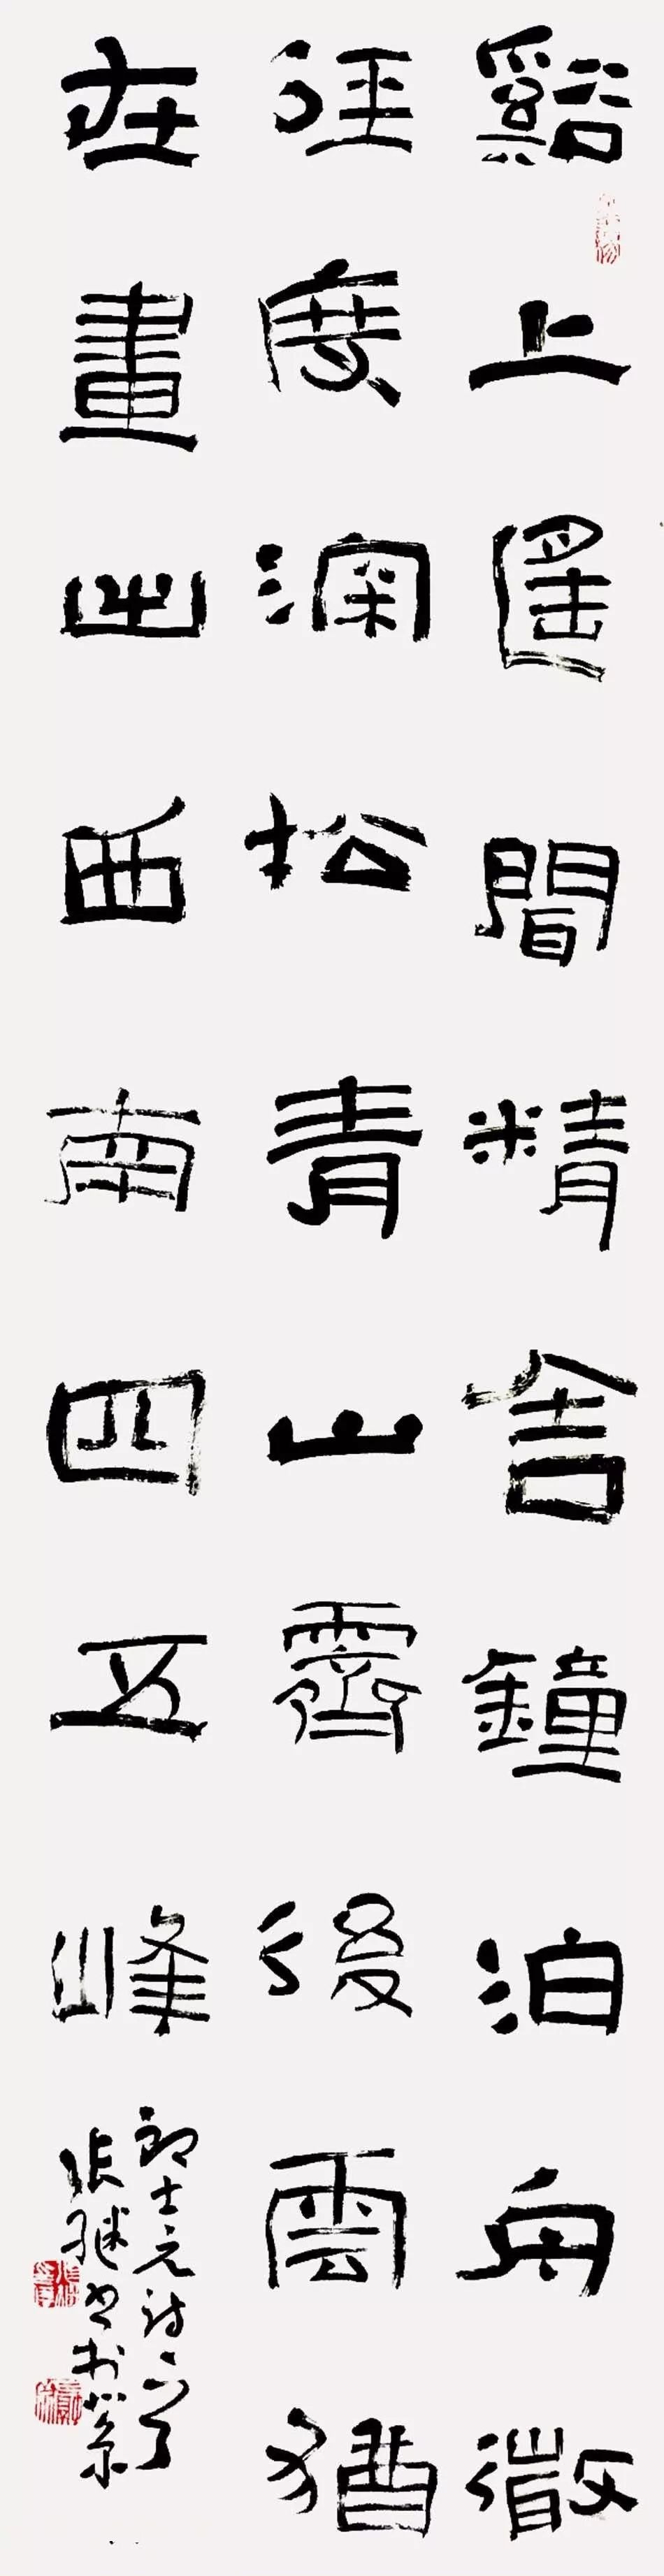 谿上遙聞精舍鐘泊舟微
徑度深松青山霽後雲猶
在畫出西南四五峰
郎士元詩一首
張繼書於京